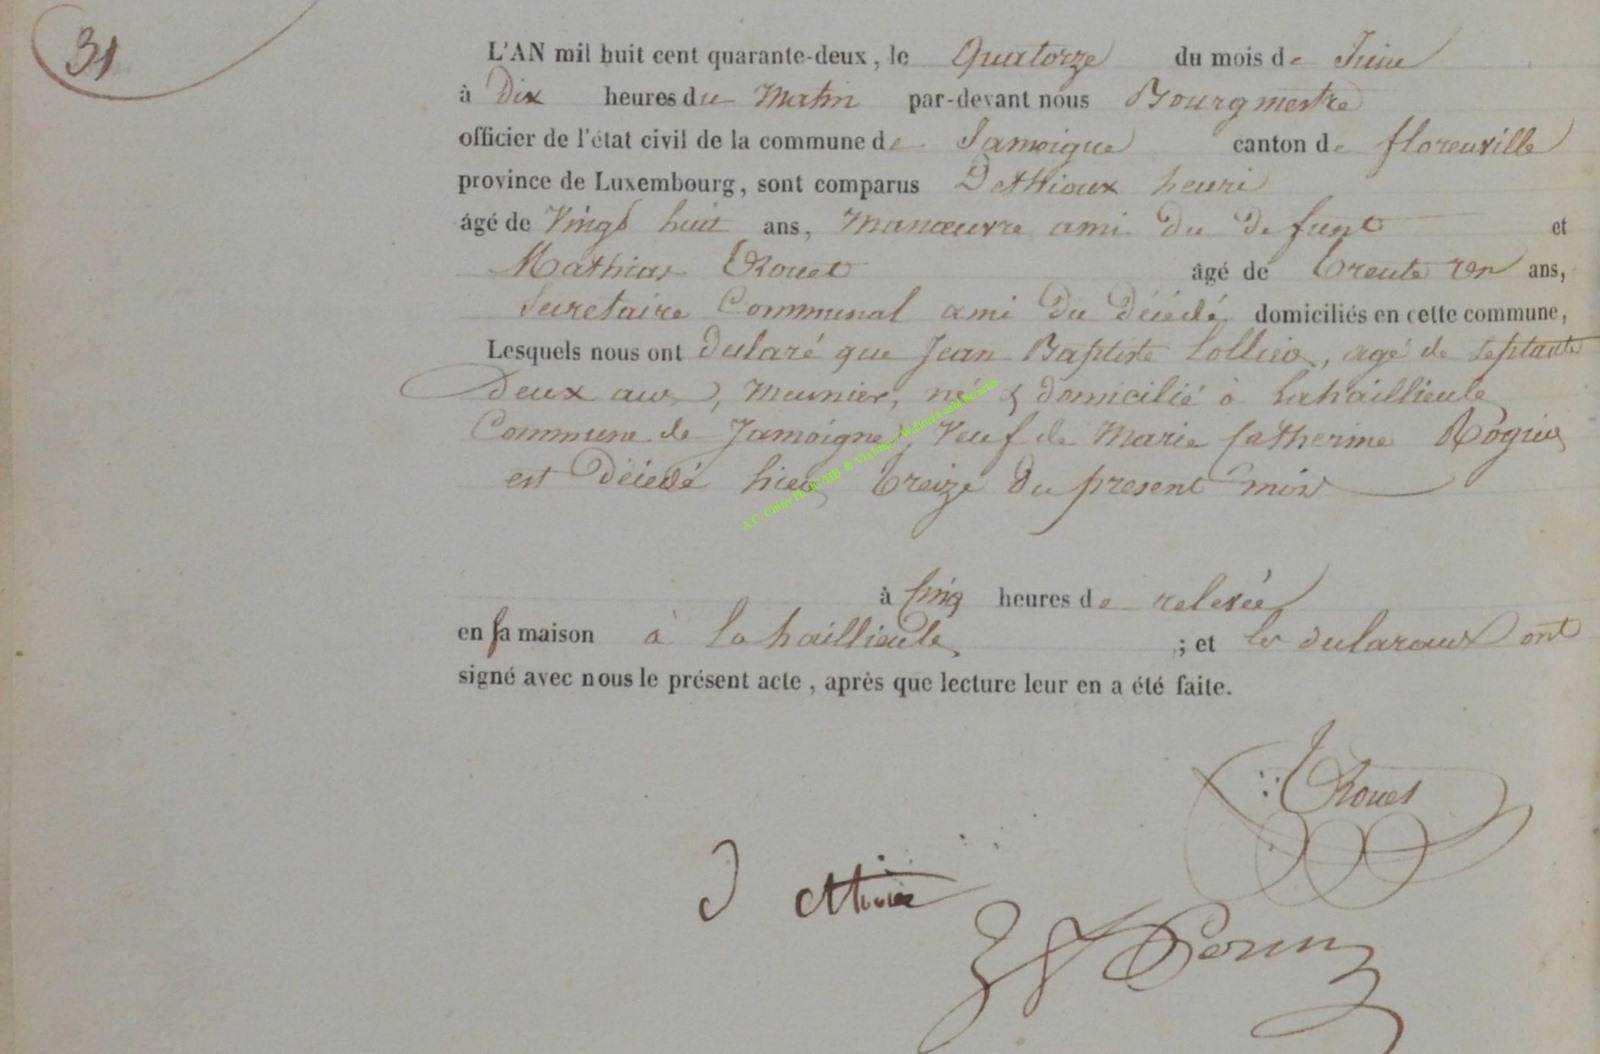 31
L'AN mil huit cent quarante-deux, le Quatorze du mois de Juin
à Dix heures du Matin par-devant nous Bourgmestre
officier de l'état civil de la commune de Jamoigne canton de florenville
province de Luxembourg, sont comparus Dethioux henri
âgé de Vingt huit ans, Manœuvre ami du defunt et
Mathias Rouet âgé de trente un ans,
Secretaire Communal ami du décédé domiciliés en cette commune,
Lesquels nous ont déclaré que Jean Baptiste Collico, agé de septante
Deux ans, Meunier, né & domicilié à Lahaillieule
Commune de Jamoigne, Veuf de Marie Catherine
est Décédé hier treize du present mois
à Cinq heures de relevée
en sa maison à Lahaillieule ; et les declarans ont
signé avec nous le présent acte, après que lecture leur en a été faite.
Rouet